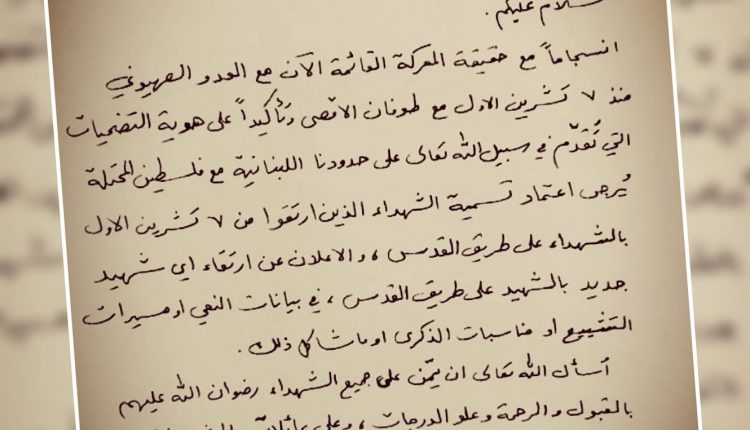 السلام عليكم.
انسجاماً مع حقيقة المعركة القائمة الآن مع العدو الصهيوني
منذ ٧ تشرين الاول مع طوفان الاقصى وتأكيداً على هوية التضحيات
التي تُقدّم في سبيل الله تعالى على حدودنا اللبنانية مع فلسطين المحتلة
يُرجى اعتماد تسمية الشهداء الذين ارتقوا من ٧ تشرين الاول
بالشهداء على طريق القدس، والاعلان عن ارتقاء اي شهيد
جديد بالشهيد على طريق القدس، في بيانات النعي او مسيرات
التشييع او مناسبات الذكرى او ما شاكل ذلك.
أسأل الله تعالى ان يمّن على جميع الشهداء رضوان الله عليهم
بالقبول والرحمة وعلو الدرجات، وعلى